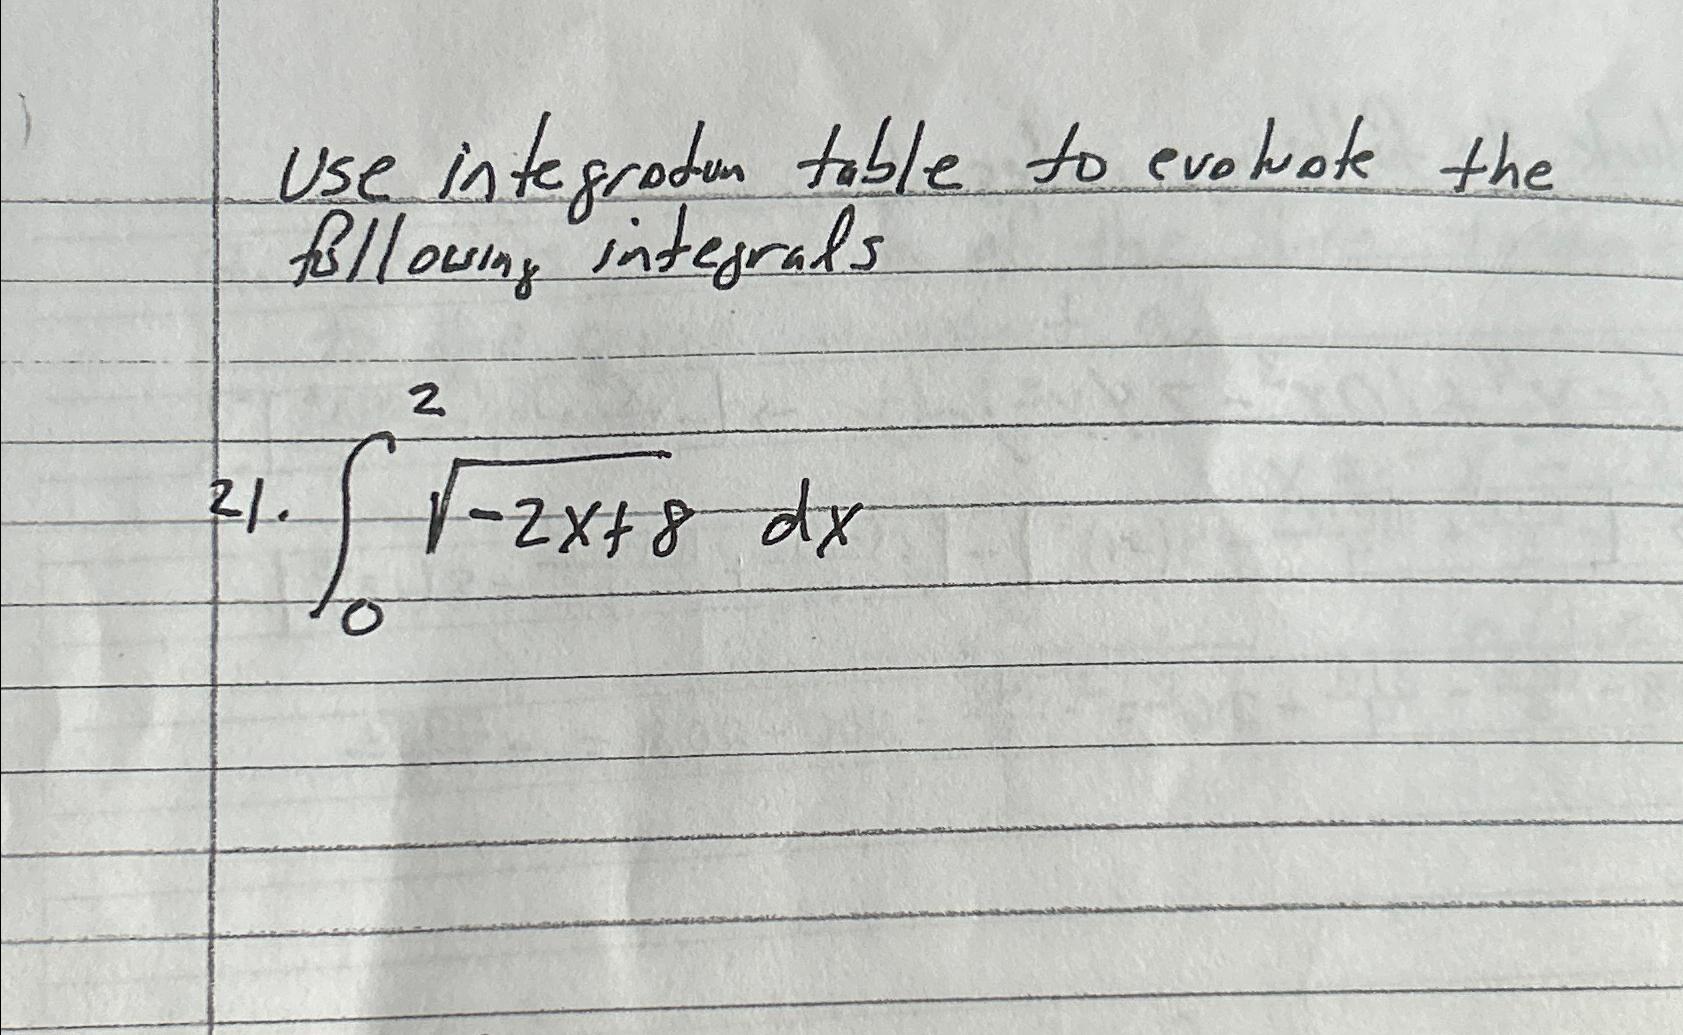 Use integration table to evaluate the
following integrals
21. ∫₀² √-2x+8 dx